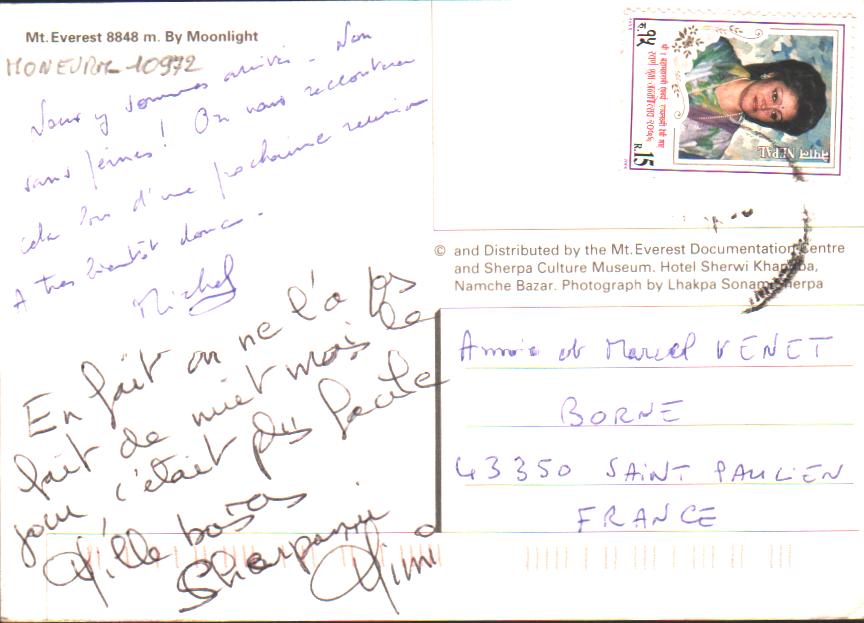 Mt. Everest 8848 m. By Moonlight
10972
Nous y sommes arrivés - Non
sans peines! On vous racontera
cela lors d'une prochaine reunion
A tres bientôt donc.
Michel
En fait on ne l'a pas
fait de nuit mais le
jour c'était plus facile
Mille bisous
रु. १५
R. 15
नेपाल NEPAL
© and Distributed by the Mt. Everest Documentation Centre
and Sherpa Culture Museum. Hotel Sherwi Khangba,
Namche Bazar. Photograph by Lhakpa Sonam Sherpa
et Marcel VENET
BORNE
43350 SAINT PAULIEN
FRANCE